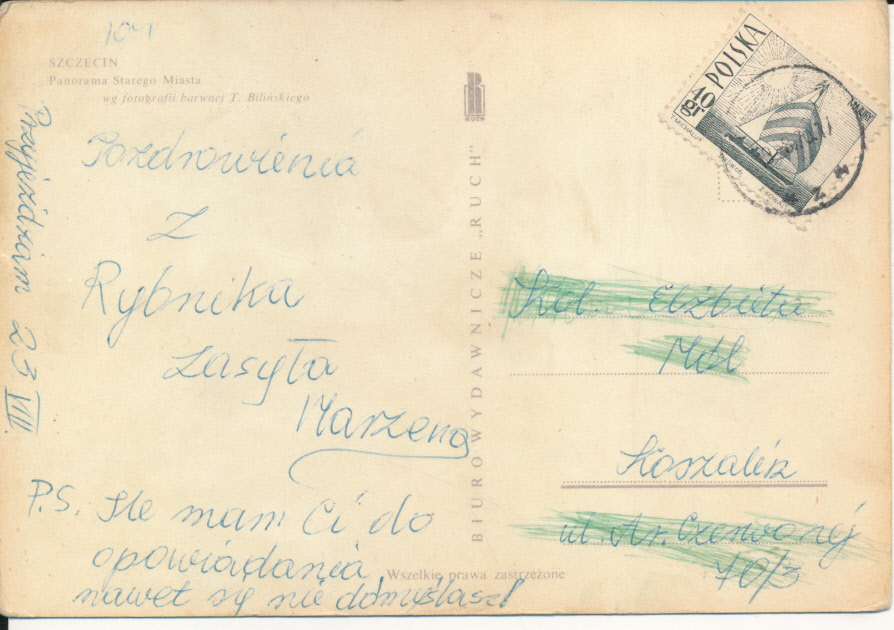 104
SZCZECIN
Panorama Starego Miasta
wg fotografii barwnej T. Bilińskiego
Przyjeżdżam 23 VIII.
Pozdrowienia
Z
Rybnika
Zasyła
Marzena
P.S. Ile mam Ci do
opowiadania
nawet się nie domyślasz!
RUCH
BIURO WYDAWNICZE „RUCH”
Wszelkie prawa zastrzeżone
POLSKA
40 gr
Kol. Elżbieta
Mól
Koszalin
ul. Ar. Czerwonej
70/3